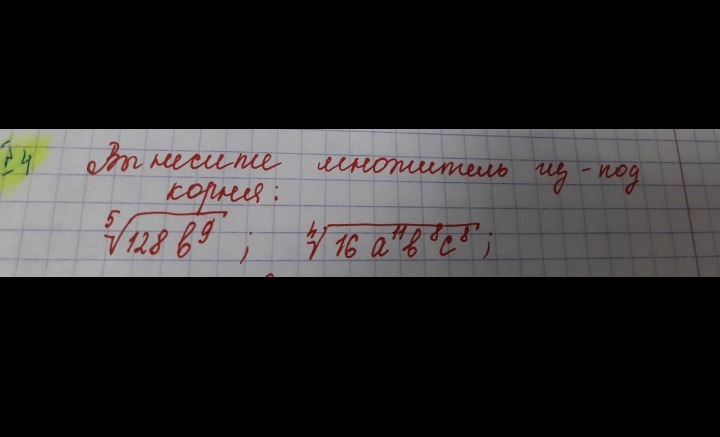 I4 Вынесите множитель из-под
корня:
⁵√128 b⁹ ; ⁴√16 a¹¹b⁸c⁸ ;